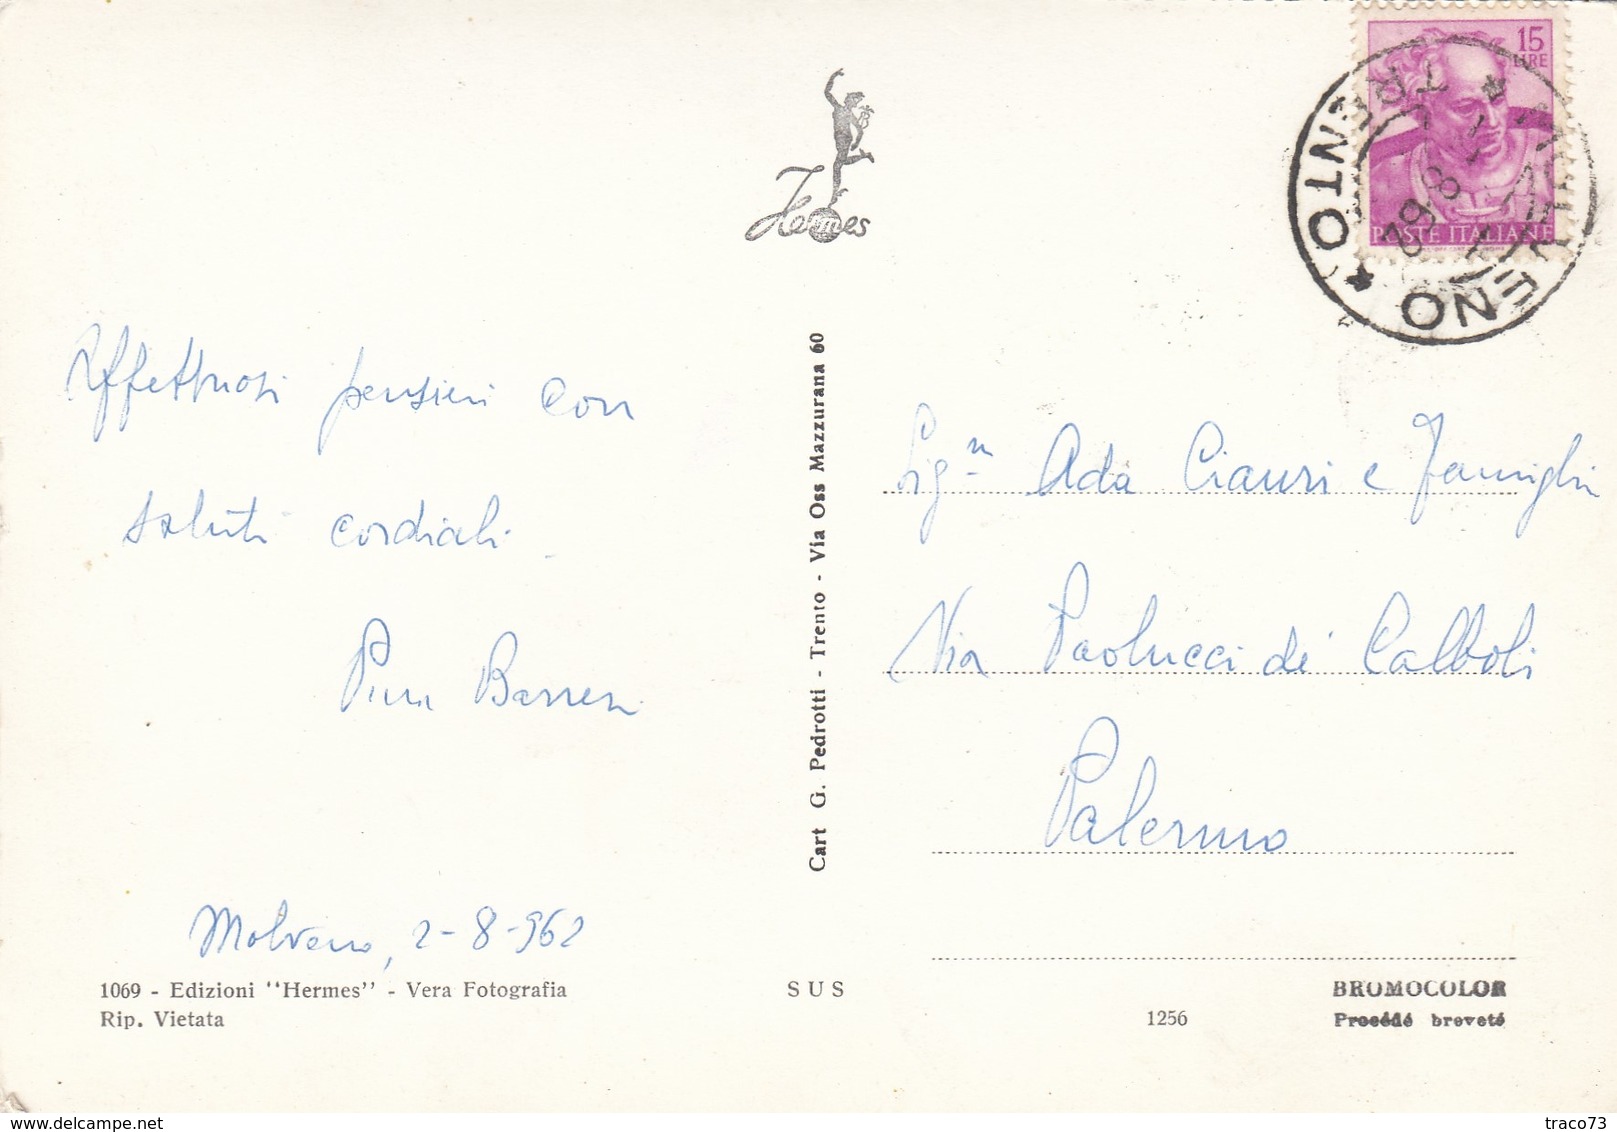 15
LIRE
POSTE ITALIANE
TRENTO
2·8·62
Hermes
Affettuosi pensieri con
saluti cordiali
Pina Barresi
Molveno, 2-8-962
1069 - Edizioni "Hermes" - Vera Fotografia
Rip. Vietata
Cart G. Pedrotti - Trento - Via Oss Mazzurana 60
SUS
Sig.na Ada Ciauri e Famiglia
Via Paolucci de' Calboli
Palermo
1256
BROMOCOLOR
Procédé breveté
traco73